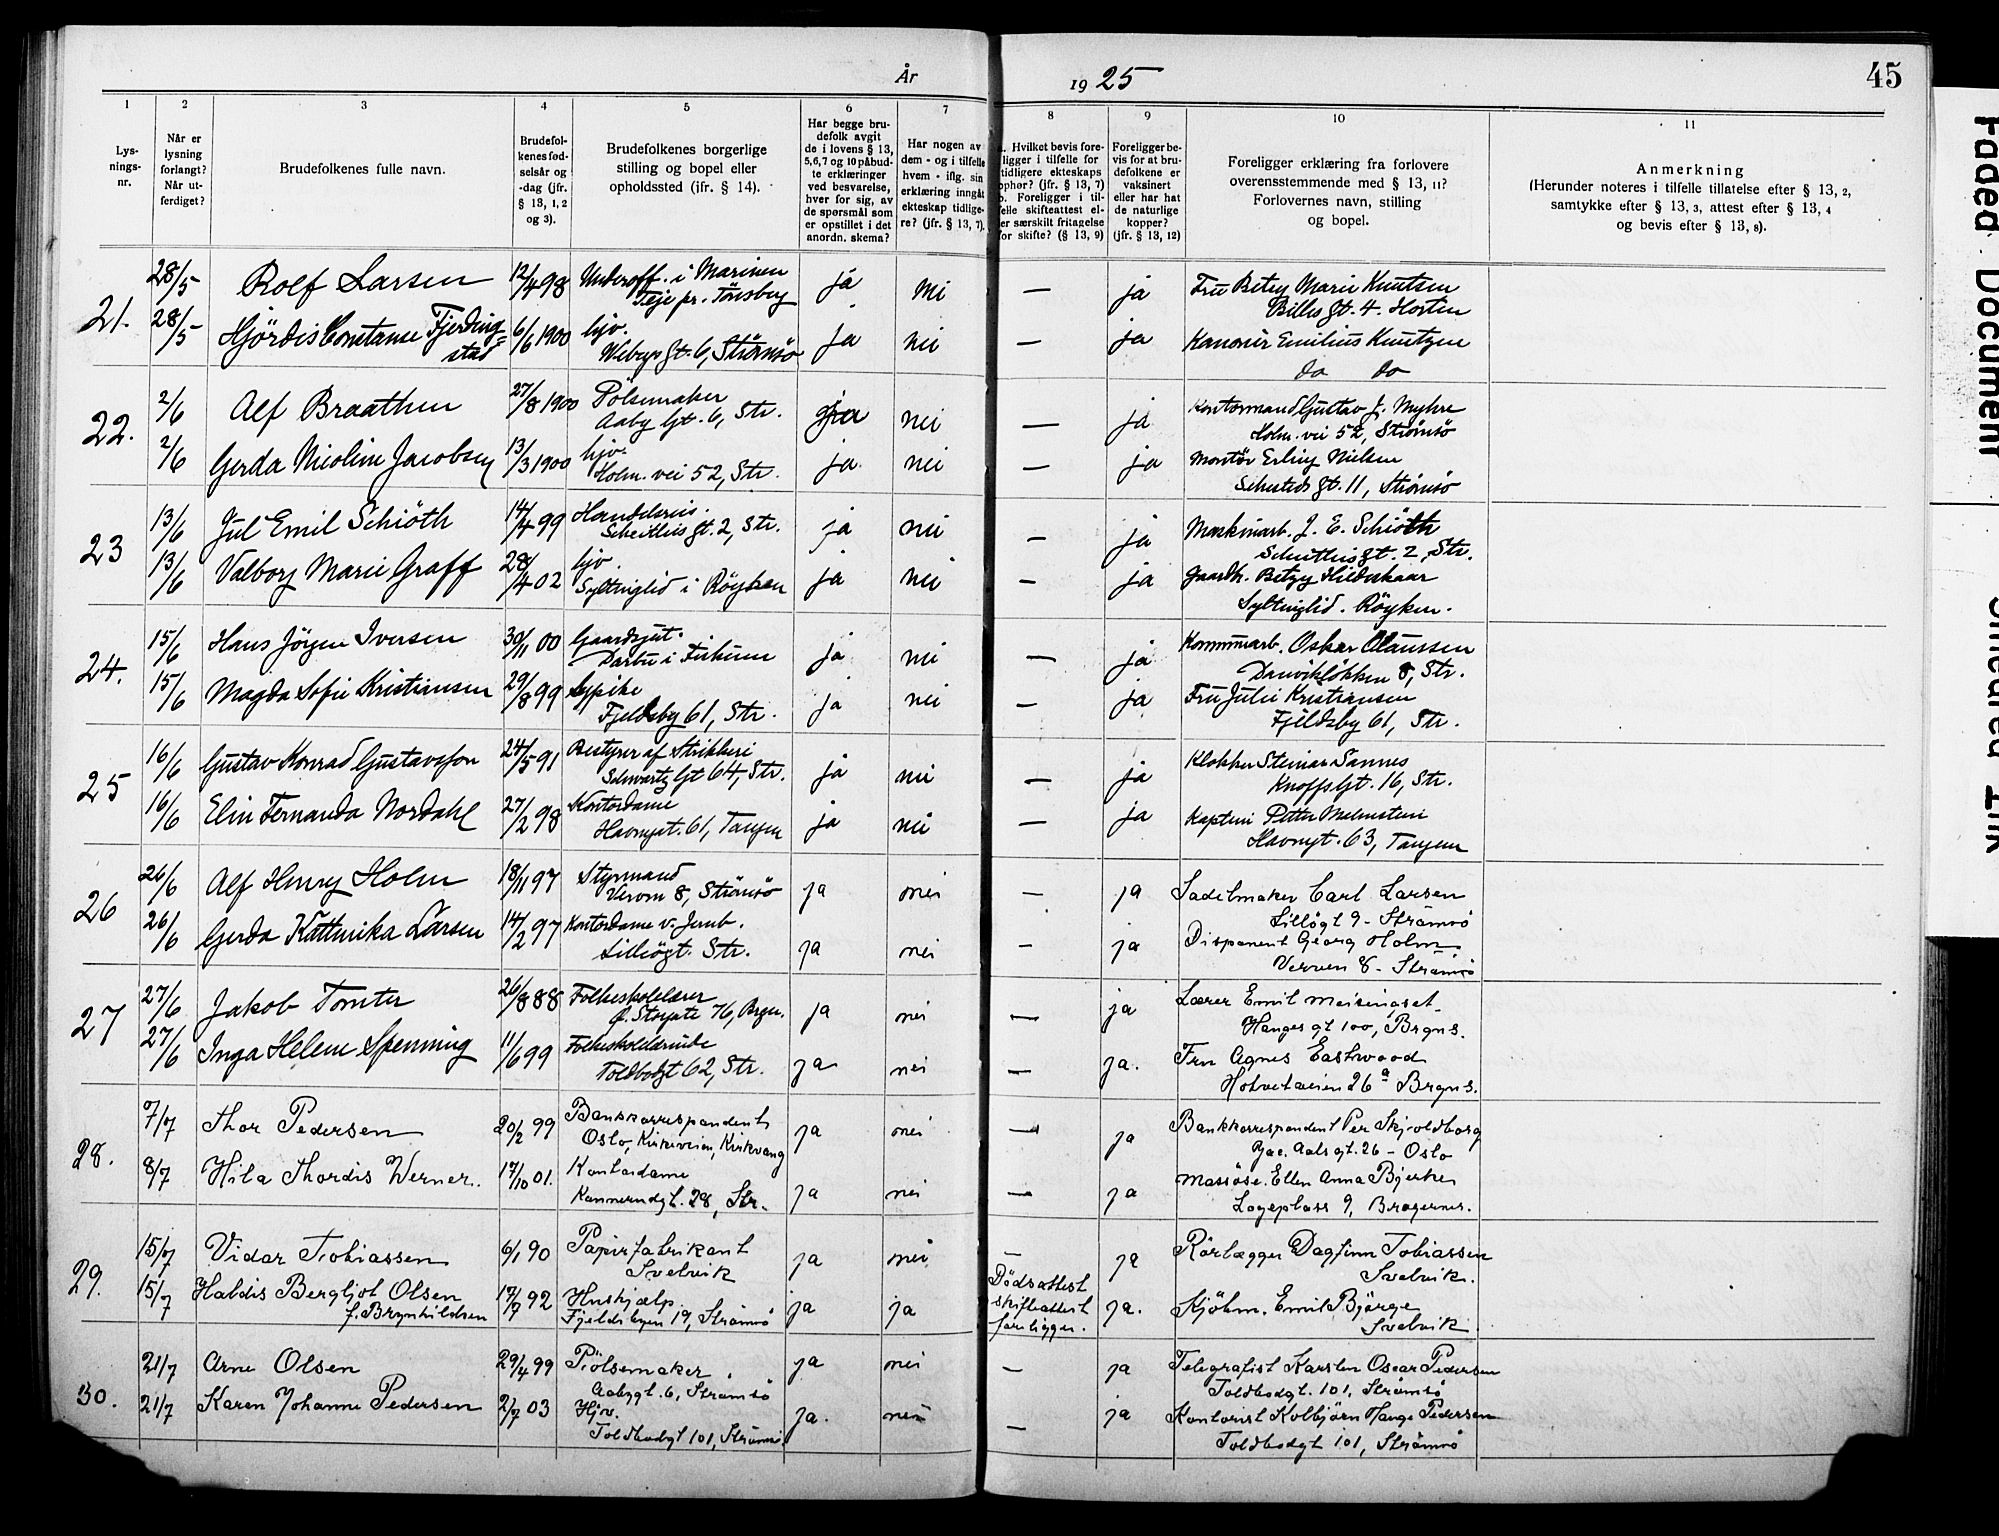 År
19 25
45
1
2
3
4
5
6
7
8
9
10
11
Lys-
nings-
nr.
Når er
lysning
forlangt?
Når ut-
ferdiget?
Brudefolkenes fulle navn.
Brudefol-
kenes fød-
selsår og
-dag (jfr.
§ 13, 1, 2
og 3).
Brudefolkenes borgerlige
stilling og bopel eller
opholdssted (ifr. § 14).
Har begge bru-
defolk avgit
de i lovens § 13,
5,6,7 og 10 påbud-
te erklæringer
ved besvarelse,
hver for sig, av
de spørsmål som
er opstillet i det
anordn. skema?
Har nogen av
dem - og i tilfelle
hvem - iflg. sin
erklæring inngåt
ekteskap tidlige-
re? (jfr. § 13, 7).
Hvilket bevis fore-
ligger i tilfelle for
tidligere ekteskaps
ophør? (jfr. § 13, 7)
b. Foreligger i til-
felle skifteattest el-
ler særskilt fritagelse
for skifte? (§ 13, 9)
Foreligger be-
vis for at bru-
defolkene er
vaksinert
eller har hat
de naturlige
kopper?
(jfr. § 13, 12)
Foreligger erklæring fra forlovere
overensstemmende med § 13, 11?
Forlovernes navn, stilling
og bopel.
Anmerkning
(Herunder noteres i tilfelle tillatelse efter § 13, 2,
samtykke efter § 13, 3, attest efter § 13, 4
og bevis efter § 13, 8).
21.
28/5 Rolf Larsen 12/4 98 Underoff. i Marinen ja nei — ja Fru Betzy Marie Knutsen
Teje pr. Tönsberg Billes gt. 4. Horten
28/5 Hjördis Constanse Fjerding= 6/6 1900 hjv. ja nei — ja Kanonér Emilius Knutzen
stad gt. 6, Strömsö do do
22.
2/6 Alf Braathen 27/8 1900 Pölsemaker ja nei — ja Kontormand Gustav J. Myhre
Aaby Gt. 6, Str. Holm. vei 52, Strömsö
2/6 Gerda Nicoline Jacobsen 13/3 1900 hjv. ja. nei — ja Montör Erling Nielsen
Holm. vei 52, Str. Sehesteds gt. 11, Strömsö
23
13/6 Jul Emil Schiöth 14/4 99 Handelsreis. ja nei — ja Maskinarb. J. E. Schiöth
Scheitlies gt. 2, Str. Scheitlies gt. 2, Str.
13/6 Valborg Marie Graff 28/4 02 hjv. ja nei — ja Gaardb. Betzy
Syltinglid i Röyken Syltinglid. Röyken.
24.
15/6 Hans Jörgen Iversen 30/11 00 Gaardsgut. ja nei — ja Kommunearb. Oskar Olaussen
Darbu i Fiskum Danvikløkken 8, Str.
15/6 Magda Sofie Kristiansen 29/8 99 Sypike ja nei — ja Fru Julie Kristiansen
Fjeldsby 61, Str. Fjeldsby 61, Str.
25
16/6 Gustav Konrad Gustavsson 24/5 91 Bestyrer af Strikkeri ja nei — ja Klokker Steinar Sannes
Schwartz Gt 64, Str. Knoffs Gt. 16, Str.
16/6 Elin Fernanda Nordahl 27/2 98 Kontordame ja nei — ja Kaptein Petter Malmstein
Havnegt. 61, Tangen Havnegt. 63, Tangen
26
26/6 Alf Henry Holm 18/11 97 Styrmand ja nei — ja Sadelmaker Carl Larsen
Verven 8, Strömsö Lillögt 9 - Strömsö
26/6 Gerda Kathinka Larsen 14/2 97 Kontordame v. Jernb. ja nei — ja Disponent Georg Holm
Lillögt. Str. Verven 8 - Strömsö
27
27/6 Jakob Tomter 26/8 88 Folkeskolelærer ja nei — ja Lærer Emil Meisingset
Ø. Storgate 76, Brgn. Hauges gt 100, Brgns.
27/6 Inga Helene Spenning 11/6 99 Folkeskolelærerinde ja nei — ja. Fru Agnes Eastwood
Toldbodgt 62, Str. Hotvetveien 26a Brgns.
28.
7/7 Thor Pedersen 20/2 99 Bankkorrespondent ja nei — ja Bankkorrespondent Per Skjoldborg
Oslo, Kirkeveien, Kirkvang Jac. Aalsgt. 26 - Oslo
8/7 Hila Thordis Werner. 17/10 01. Kontordame ja nei — ja Massøse. Ellen Anna Bjerke
gt. 28, Str. Logeplass 9, Bragernes.
29.
15/7 Vidar Tobiassen 6/1 90 Papirfabrikant ja nei — ja Rörlægger Dagfinn Tobiassen
Svelvik Svelvik.
15/7 Haldis Bergljot Olsen 17/9 92 Huskjælp ja ja Dödsattest ja. Kjöbm. Emil Bjørge
f. Brynhildsen Fjeldsbyen 19, Strömsö skifteattest Svelvik
foreligger.
30.
21/7 Arne Olsen 29/4 99 Pölsemaker ja nei — ja Telegrafist Karsten Oscar Pedersen
Aabygt. 6, Strömsö Toldbodgt. 101, Strömsö
21/7 Karen Johanne Pedersen 2/7 03 Hjv. ja. nei — ja Kontorist Kolbjörn Hauge Pedersen
Toldbodgt 101, Strömsö Toldbodgt 101, Strömsö
Faded Document
Smeared Ink